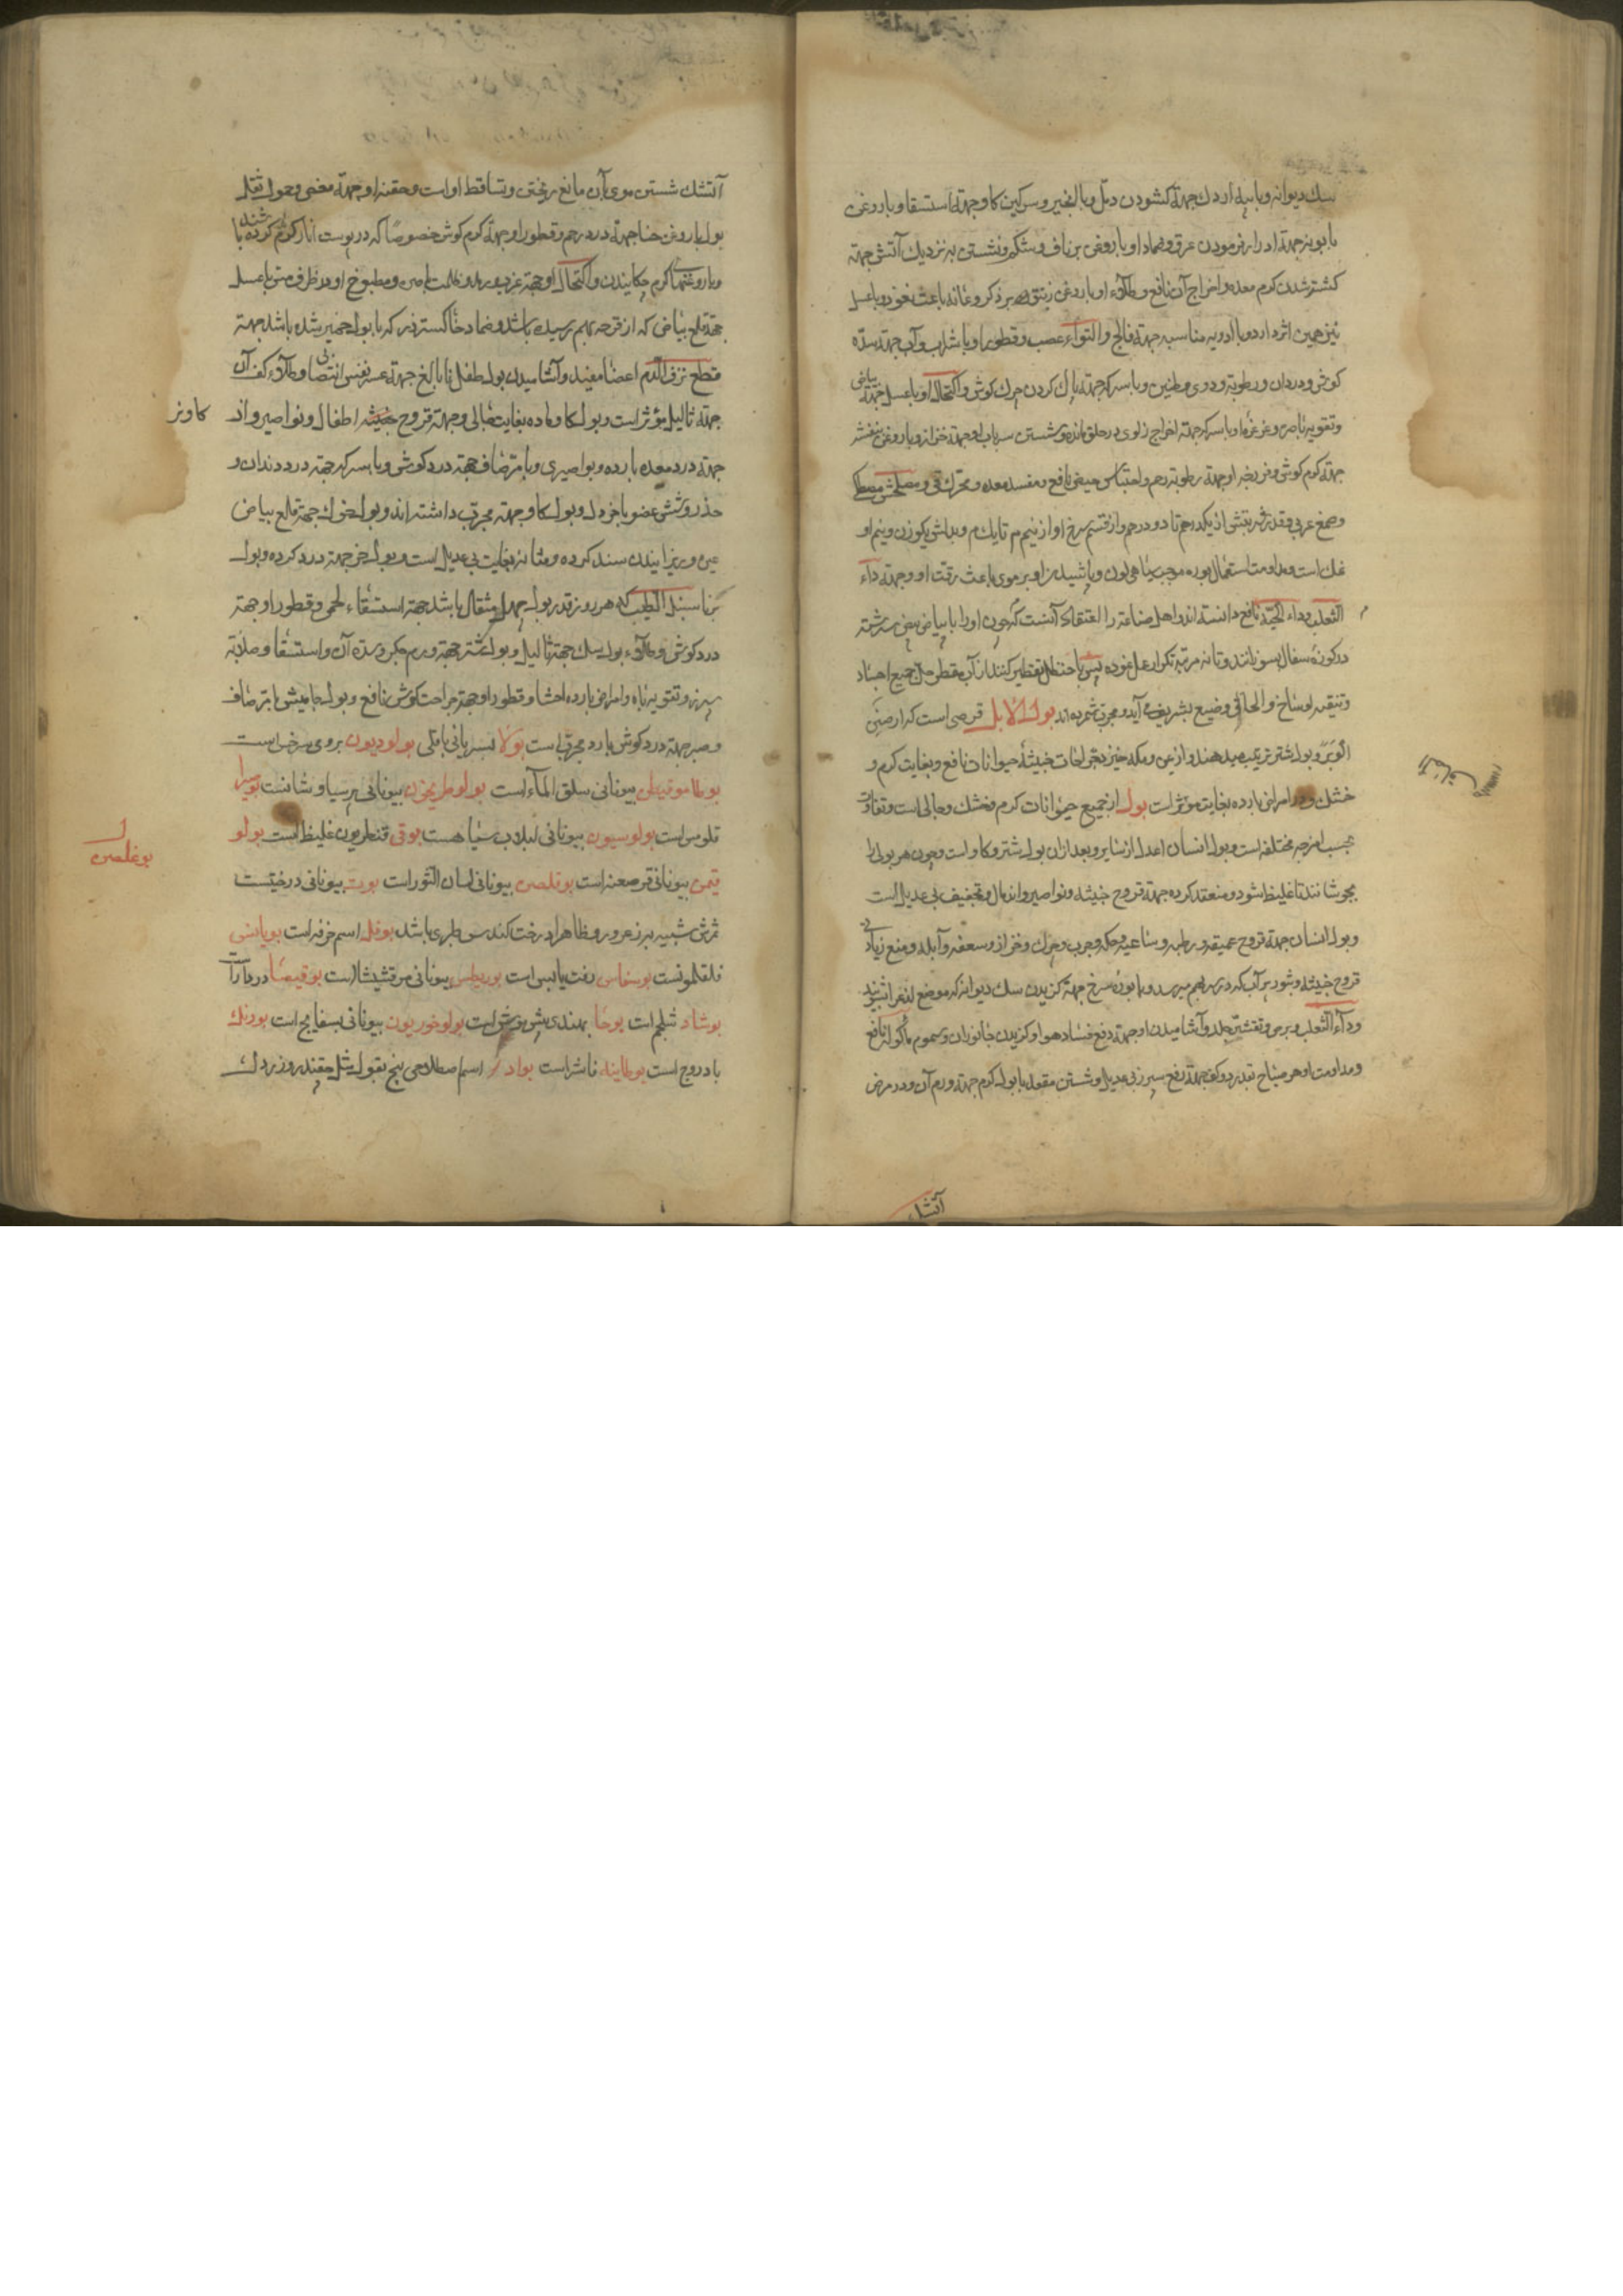 سک دیوانه و با پیه اردک جهة کشودن دمل و با انجیر و سرکین کاو جهة استسقا و با روغن
بابونه جهة ادرار فرمودن عرق و ضماد او با روغن بر ناف و شکم و نشستن به نزدیک آتش جهة
کشته شدن کرم معده و اخراج آن نافع و طلاء او با روغن زنبق بر ذکر و عانه باعث نعوذ و با عسل
نیز همین اثر دارد و با ادویه مناسبه جهة فالج و التواء عصب و قطور او با شراب و آب جهة سدّه
کوش و درد آن و رطوبة و دوی و طنین و با سرکه جهة پاک کردن چرک کوش و اکتحال او با عسل جهة بیاض
و تقویه باصره و غرغرهٔ او با سرکه جهة اخراج زلوی در حلق مانده و شستن سر با او جهة حزاز و با روغن بنفشه
جهة کرم کوش و فرزجه او جهة رطوبة رحم و احتباس حیض نافع و مفسد معده و محرک قی و مصلحش مصطکی
و صمغ عربی و قدر شربتش از یکدرهم تا دو درهم و از قسم سرخ او از نیم م تا یک م و بدلش یکوزن و نیم او
نمک است و مداومت استعمال بوره موجب سیاهی لون و پاشیدن او بر موی باعث رقت او و جهة داء
الثعلب و داء الحیّة نافع دانسته اند و اهل صناعة را اعتقاد آنست که چون او را با بیاض بیض سرشته
در کوزه سفال بسوزانند و تا نه مرتبه تکرار عمل نموده پس با حنظل تقطیر کنند از آب مقطر حل جمیع اجساد
و تنقیه اوساخ و الحاق وضیع بشریف می آید و مجرب شمرده اند بول الابل قرصی است که از صمغ
الوبر و بول شتر ترتیب میدهند و از یمن و مکه خیزد جراحات خبیثه حیوانات نافع و بغایت کرم و
خشک و در امراض بارده بغایت مؤثر است بول از جمیع حیوانات کرم و خشک و جالی است و تفاوت
بحسب امزجه مختلفه است و بول انسان اعدل از سایر و بعد از ان بول شتر و کاو است و چون هر بولی را
بجوشانند تا غلیظ شود و منعقد کرده جهة قروح خبیثه و نواصیر و اندمال و تجفیف بی عدیل است
و بول انسان جهة قروح عمیقه و رطبه و ساعیه و حکه و جرب و چرک و حزاز و سعفه و آبله و منع زیادتی
قروح خبیثه و بثور پر آب که در سر بهم میرسد و با بورهٔ سرخ جهة کزیدن سک دیوانه که موضع لذع را بشویند
و داء الثعلب و برص و تقشیر جلد و آشامیدن او جهة دفع فساد هوا و کزیدن جانوران و سموم ماکوله نافع
و مداومت او هر صباح بقدر دو کف جهة رفع سپرز بی عدیل و شستن مقعد با بول کرم جهة ورم آن و در مرض
آتشک
آتشک شستن موی بآن مانع ریختن و تساقط او است و حقنه او جهة مغص و حمول ثفل
بول با روغن حنا جهة درد رحم و قطور او جهة کرم کوش خصوصا که در پوست انار کرم کرده باشند
و با روغنها کرم چکانیدن و اکتحال او جهة غرب و رمد و ظلمت باصره و مطبوخ او در ظرف مس با عسل
جهة قلع بیاض که از قرحه بهم رسیده باشد و ضماد خاکستر ذر که با بول خمیر شده باشد جهة
قطع نزف الدم اعضا مفید و آشامیدن بول طفل نابالغ جهة عسر نفس انتصابی و طلاء کف آن
جهة ثالیل مؤثر است و بول کاو ماده بغایت جالی و جهة قروح خبیثه اطفال و نواصیر و از
کاو نر
جهة درد معده بارده و بواصیری و با مرّ صاف جهة درد کوش و با سرکه جهة درد دندان و
خدر و تشنج عضو با خردل و بول کاو جهة مجرب داشته اند و بول خوک جهة قلع بیاض
عین و ریزانیدن سنک کرده و مثانه بغایت بی عدیل است و بول خر جهة درد کرده و بول
بز با سنبل الطیب که هر روز قدر بول چهل مثقال باشد جهة استسقاء لحمی و قطور او جهة
درد کوش و طلاء بول سک جهة ثالیل و بول شتر جهة ورم جکر و سده آن و استسقا و صلابة
سپرز و تقویه باه و امراض بارده احشا و قطور او جهة جراحت کوش نافع و بول جامیش با مرّ صاف
و صبر جهة درد کوش بارد مجرب است بولا بسریانی باقلی بولودیون بروی سرخس است
بوطاموقیطن بیونانی سلق الماء است بولوطریخون بیونانی پرسیاوشانست بوسیرا
قلومس است بولوسیون بیونانی لبلاب سیاهست بوقی قنطریون غلیظ است بولو
بوغلصن
قیمن بیونانی قرصعنه است بوقلصن بیونانی لسان الثور است بوت بیونانی درختیست
ثمرش شبیه بزعرور و ظاهرا درخت کندس طبری باشد بوقله اسم خرفه است بویانسی
قلقلمونست بوسخاس رفت یابس است بوریطس بیونانی مرقشیشا است بوقیصا دردار است
بوشاد شلجم است بوحا بهندی بیش موش است بولوخوریون بیونانی بسفایج است بورنک
بادروج است بوطاینه فاشرا است بواد اسم اصطلاحی بیخ بقول مثل چغندر و زردک